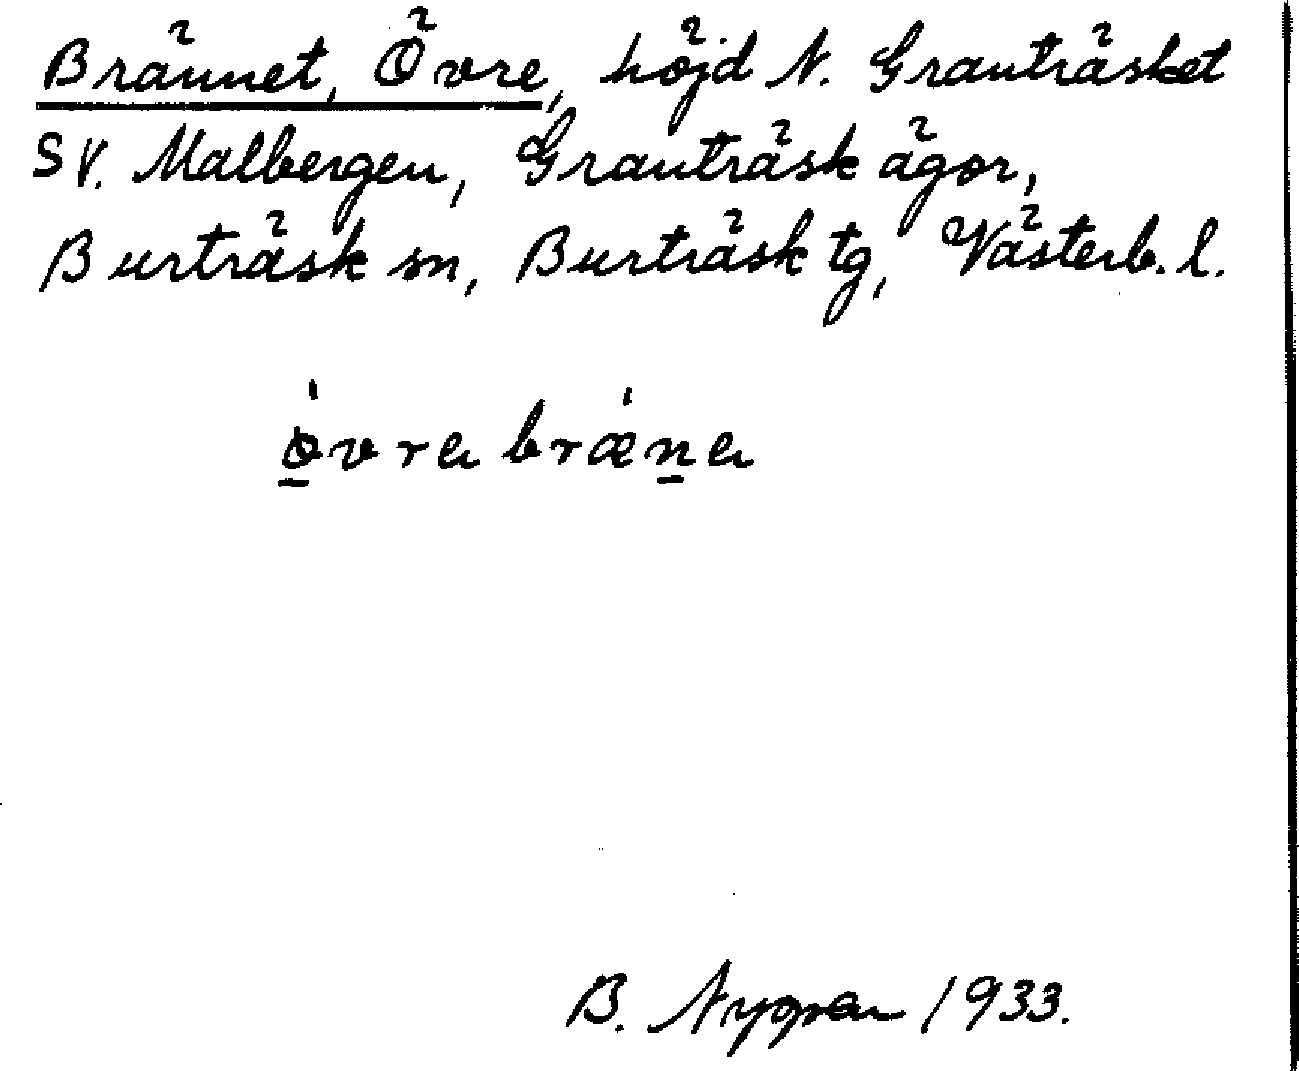 Brännet, Övre, höjd N. Granträsket
SV. Malbergen, Granträsk ägor,
Burträsk sn, Burträsk tg, Västerb. l.
ö̱́vra brǽṉa
B. Nygren 1933.